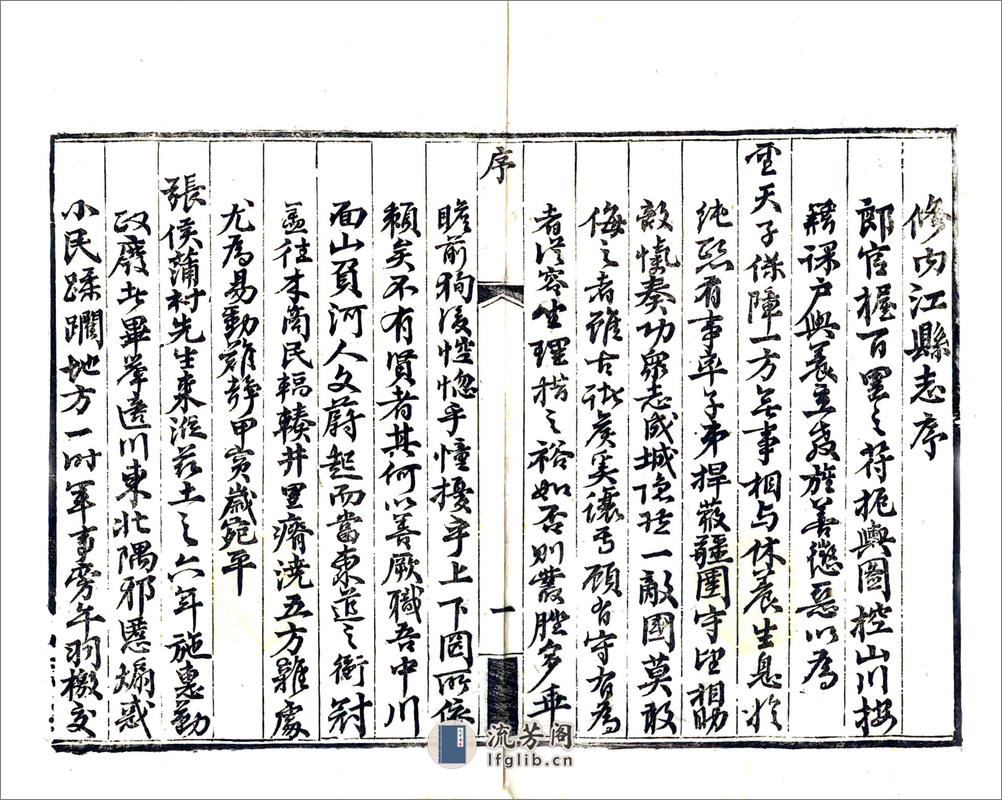 修內江縣志序
郎官握百里之符扼輿圖控山川按
籍課戶興養立教旌善懲惡以為
聖天子保障一方無事相与休養生息於
純熙有事率子弟捍蔽疆圉守望相助
敵愾奏功眾志成城隱然一敵國莫敢
侮之者雖古諸侯奚讓焉顧有守有為
者從容坐理措之裕如否則叢脞多乖
序
一
瞻前狥後悾惚乎憧擾乎上下罔所依
賴矣不有賢者其何以善厥職吾中川
面山負河人文蔚起而當東道之衝冠
盖往來商民輻輳井里瘠澆五方雜處
尤為易動難靜甲寅歲宛平
張侯蒲村先生來涖茲土之六年施惠勤
政廢此畢舉適川東北隅邪匿煽惑
小民蹂躪地方一时軍書旁午羽檄交
流芳阁
lfglib.cn